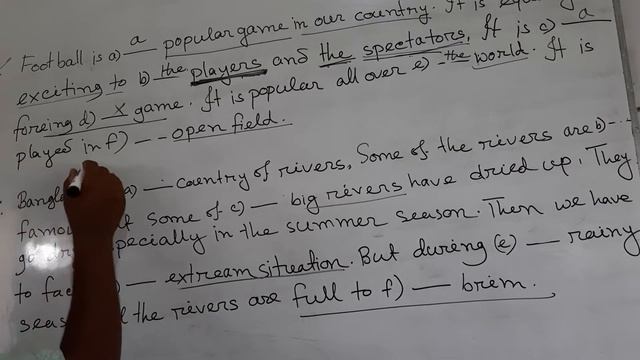 Football is a) a popular game in our country. It is
exciting to b) the players and the spectators. It is c) a
foreing d) x game. It is popular all over e) the world. It is
played in f) -- open field.
a) — country of rivers. Some of the rivers are b) --
some of c) — big rivers have dried up. They
in the summer season. Then we have
to — extream sitreation. But during (e) — rainy
the rivers are full to f) — brim.